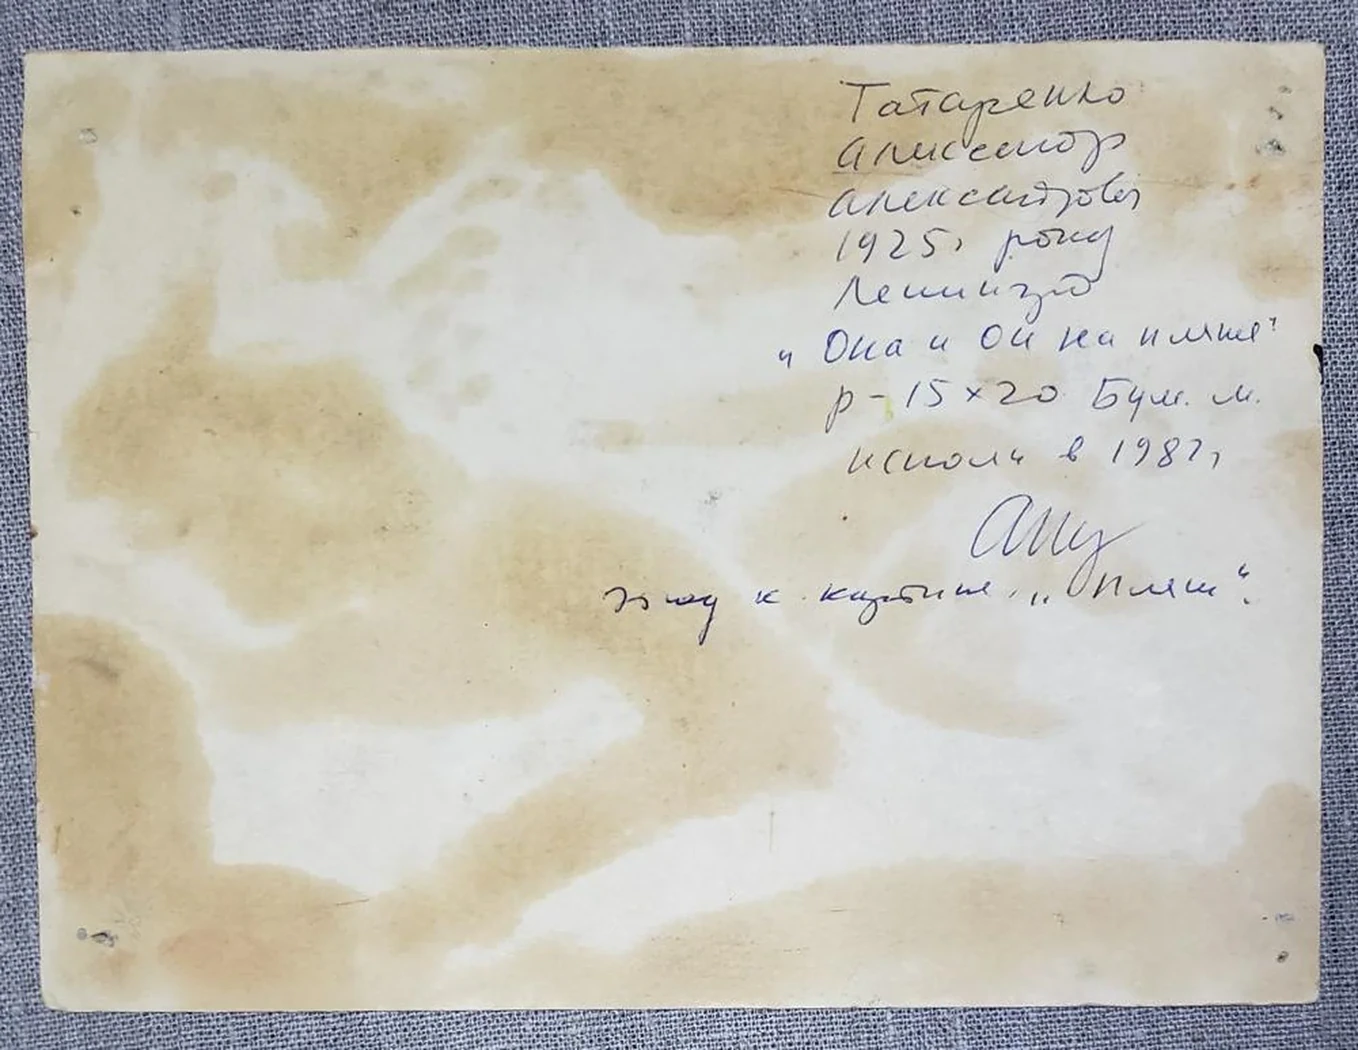 Татаренко
Александр
Александрович
1925г рожд
Ленинград
„Она и Он на пляже"
р-15×20 Бум. м.
исполн в 1987г
этюд к картине „Пляж".